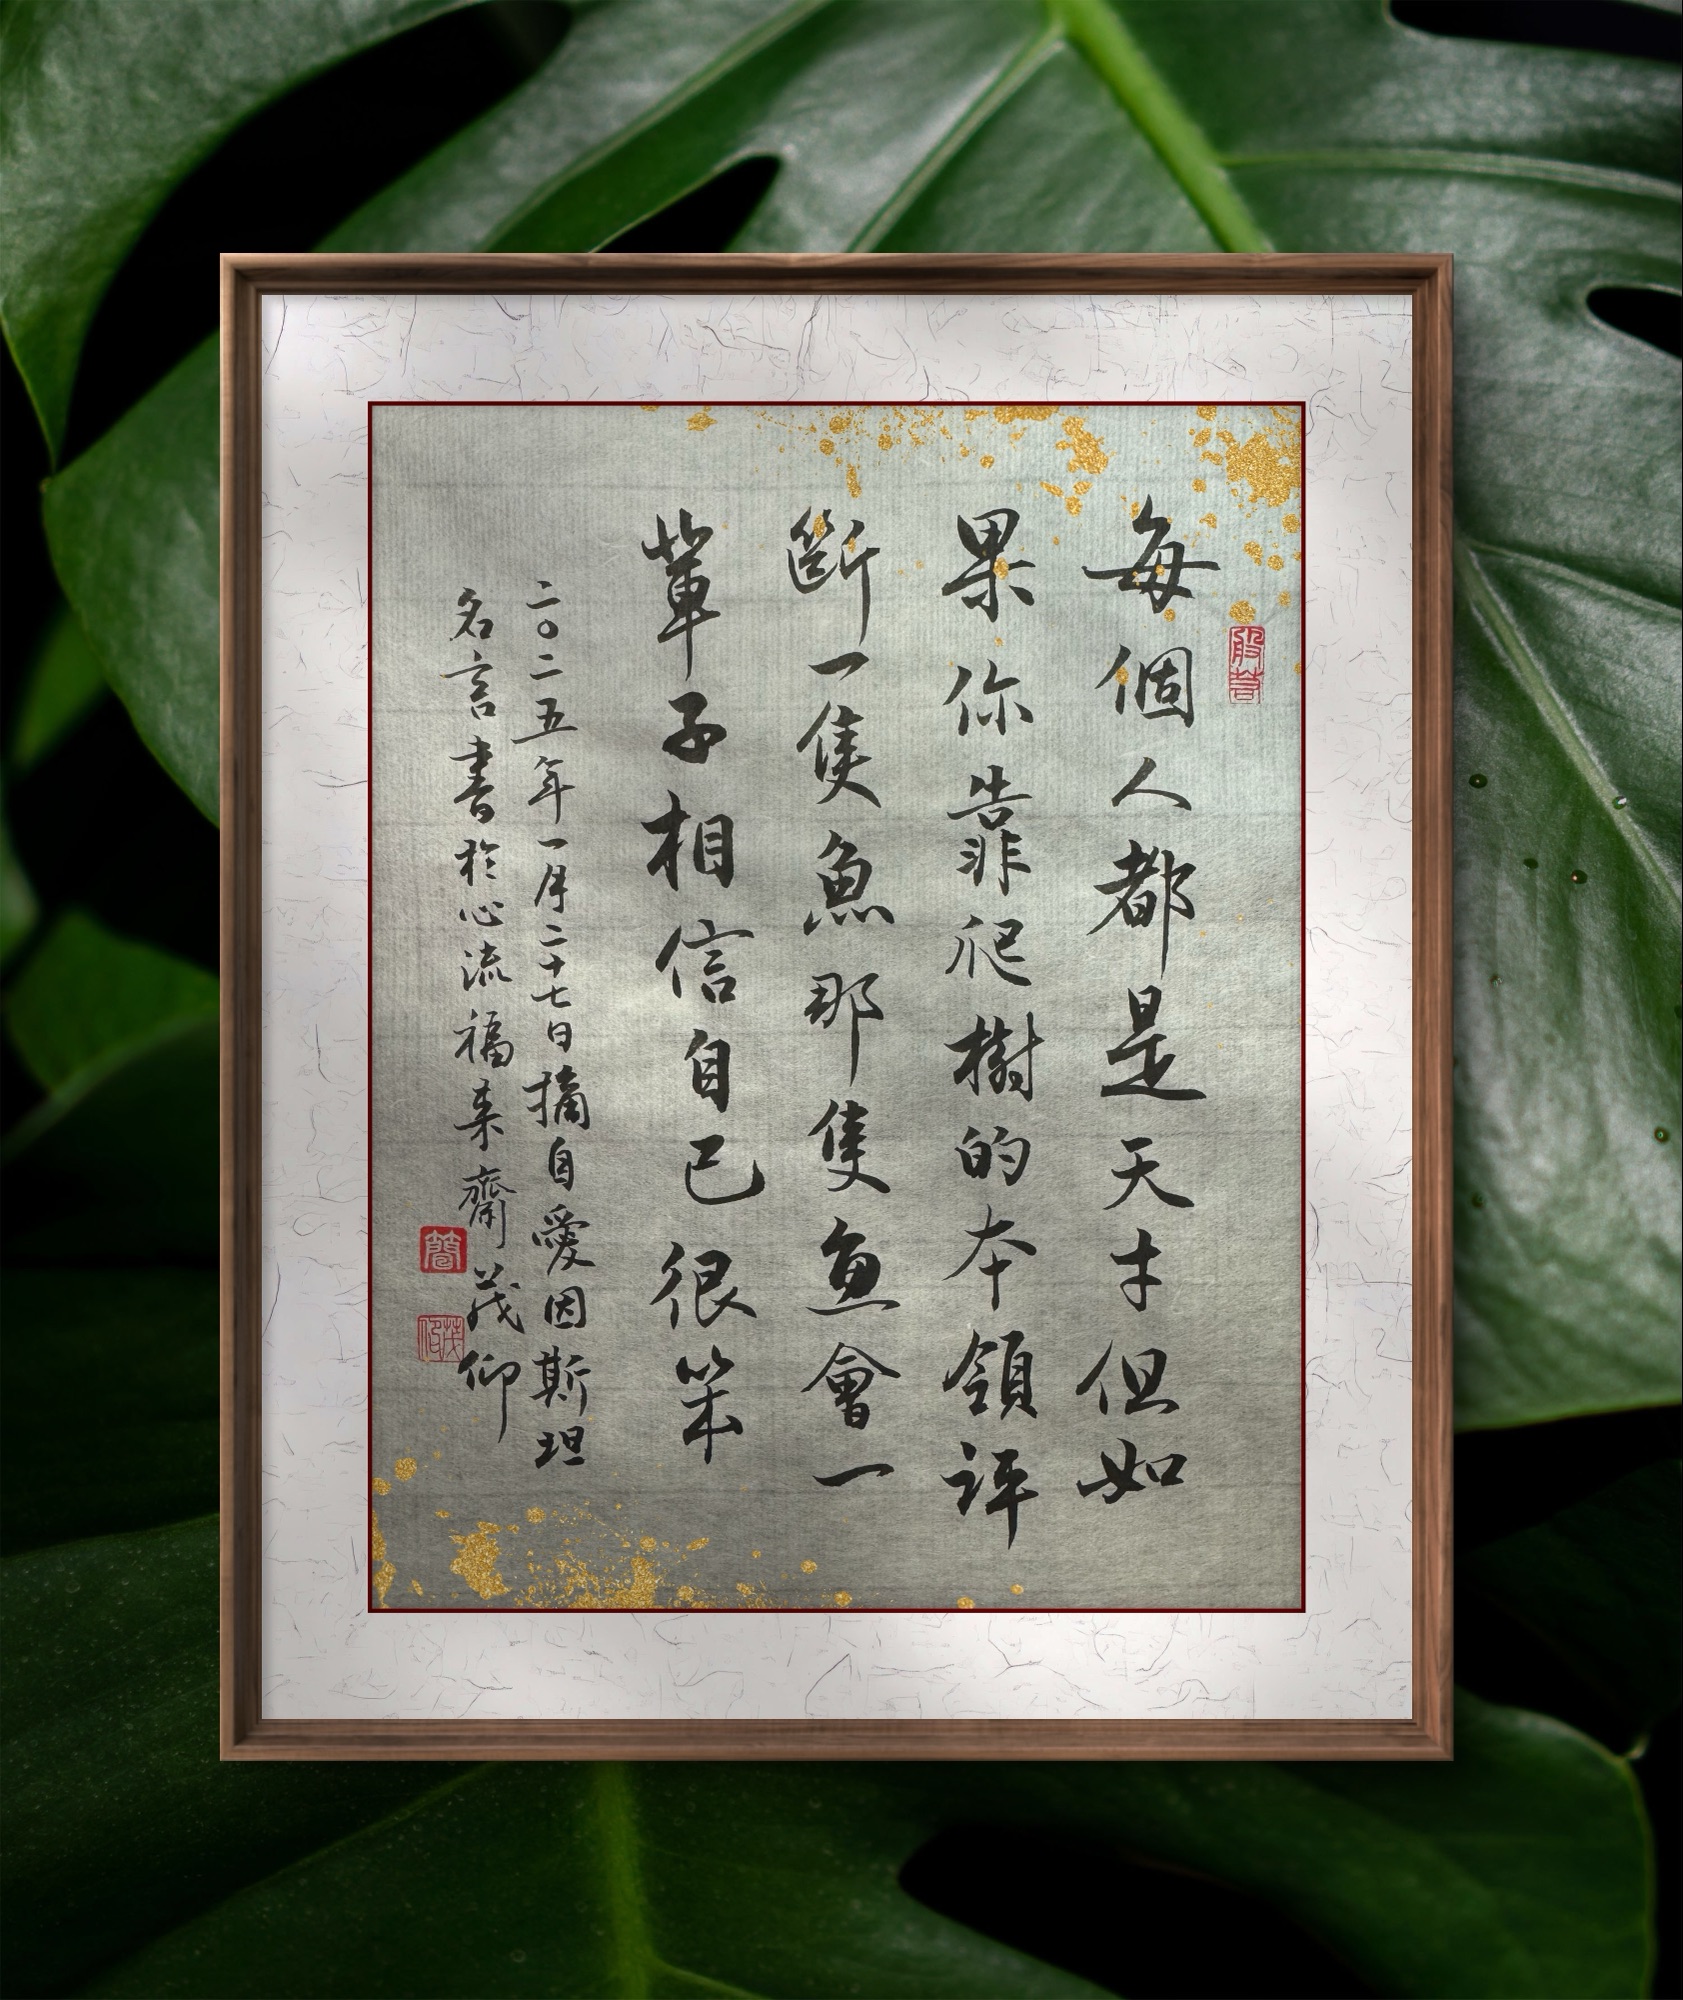 每個人都是天才但如
果你靠爬樹的本領評
斷一隻魚那隻魚會一
輩子相信自己很笨
二〇二五年一月二十七日摘自愛因斯坦
名言書於心流福来齋茂仰
簡